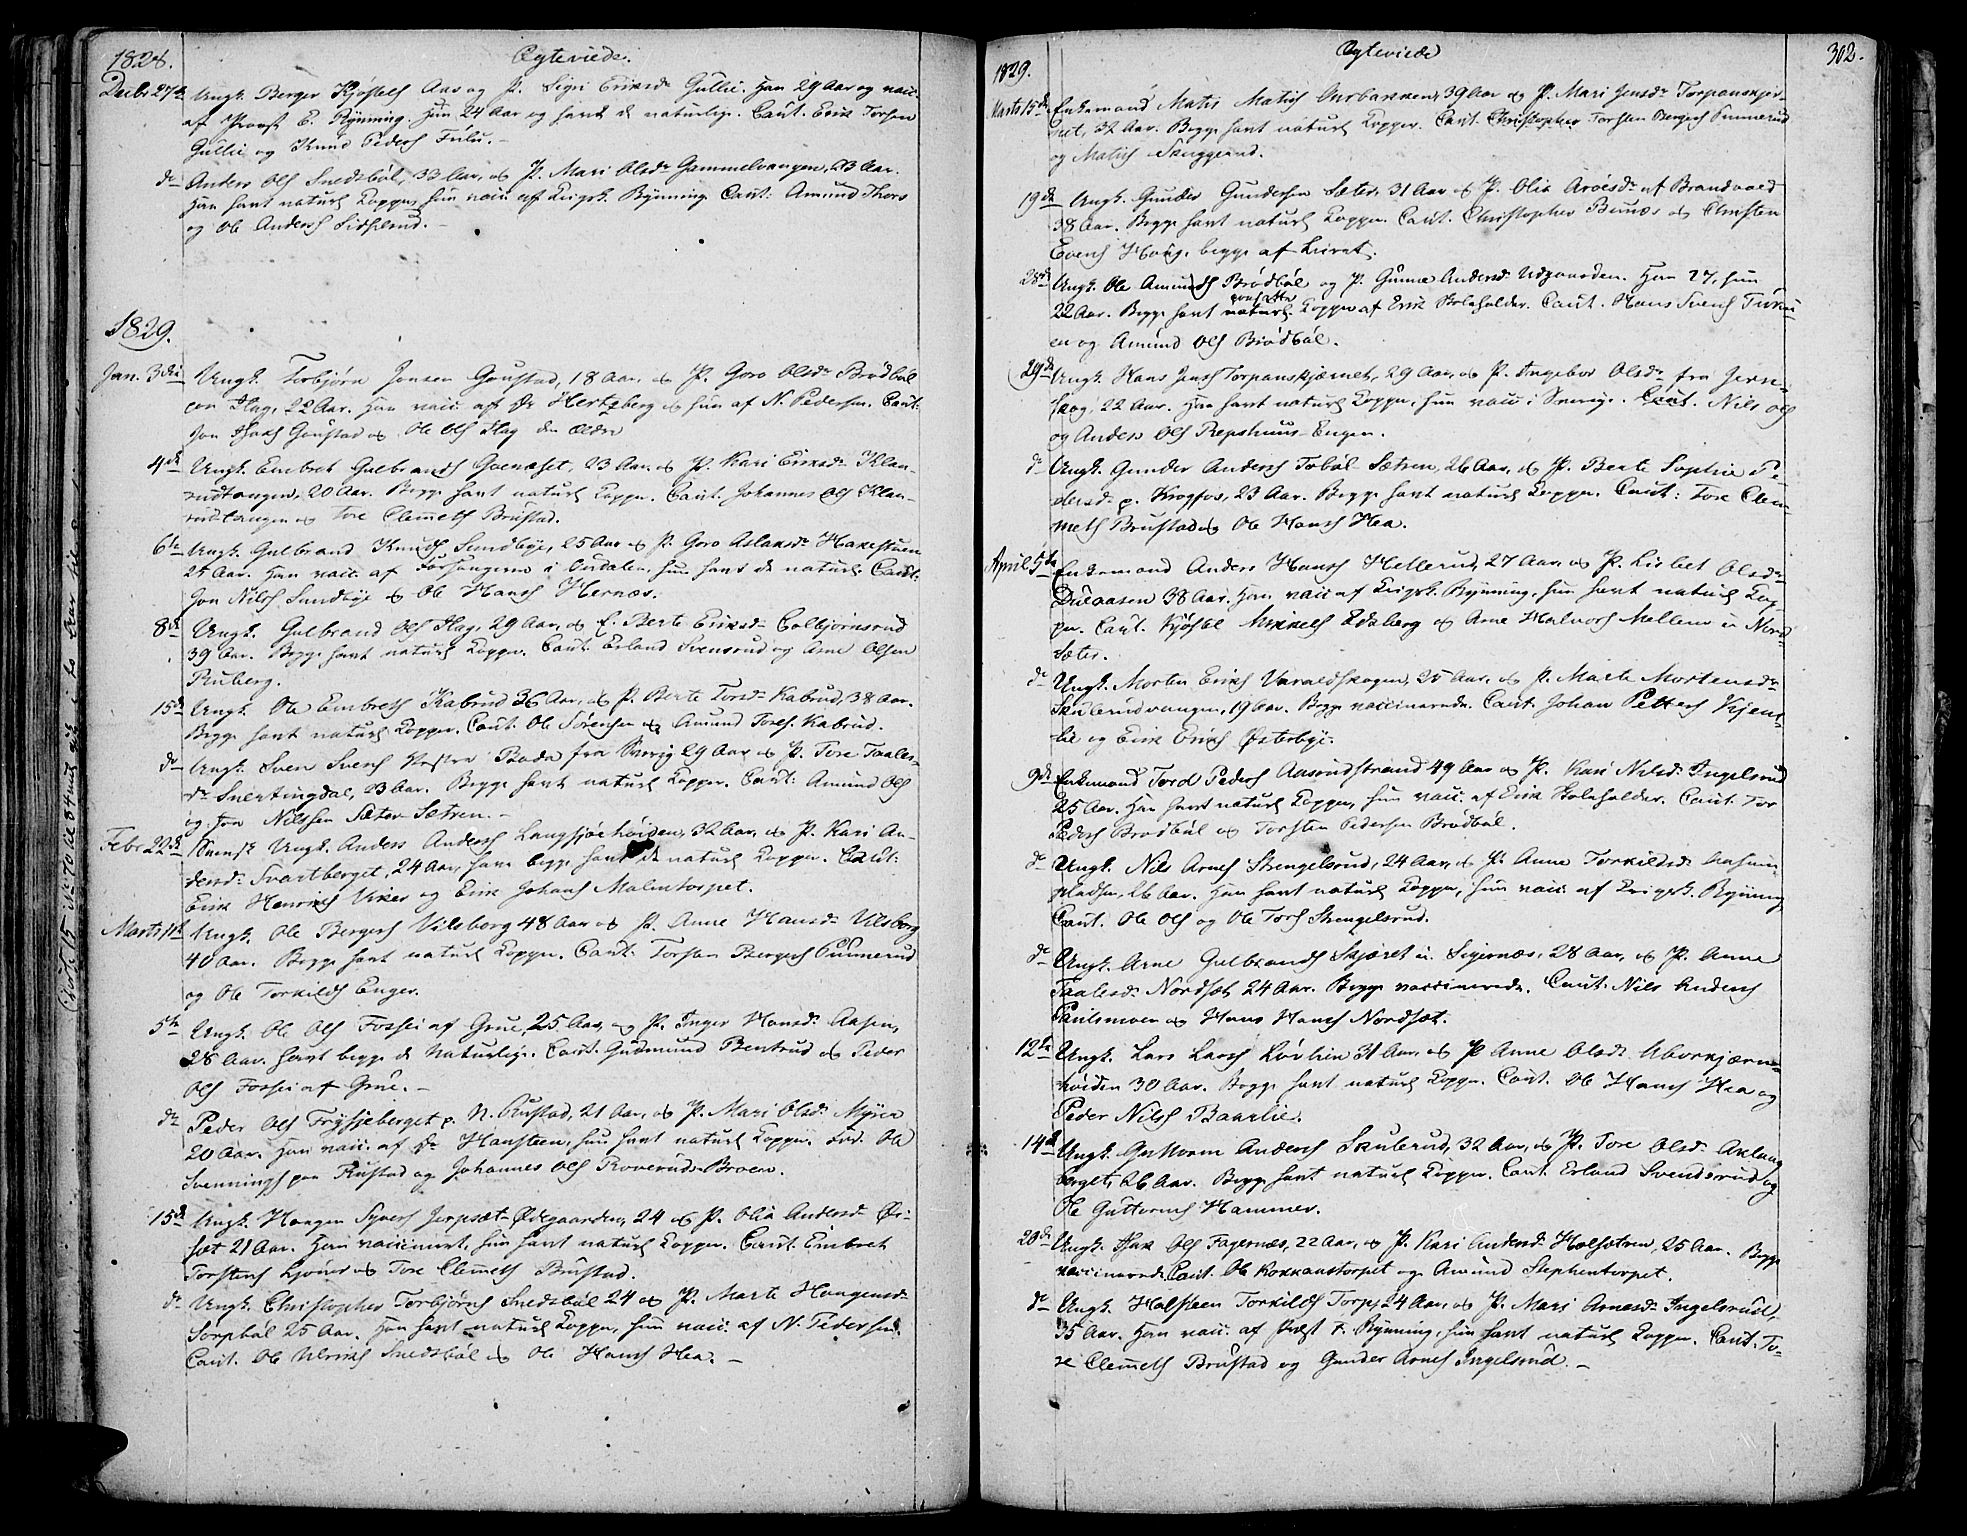 1828.
Ægteviede.
Decbr 27de Ungk. Berger Kjøstels Aas og P. Sigri Eriksdr Gullie. Han 29 Aar og vacc.
af Provst E. Rynning. Hun 24 Aar og havt de naturlige. Caut. Erik Torsen
Gullie og Knud Peders Fulu. –
do Anders Ols Snedsbøl, 33 Aar, og P. Mari Olsdr Gammelvangen, 23 Aar.
Han havt naturl Kopper, hun vacc af Krigsk. Rynning. Caut: Amund Thors
og Ole Anders Lidherud. –
1829.
Jan. 3die Ungk. Torbjørn Jonsen Goustad, 18 Aar, og P. Goro Olsdr Brødbøl
paa Hag, 22 Aar. Han vacc. af Dr Hertzberg og hun af N. Pedersen. Caut:
Jon Isaks Goustad og Ole Ols Hag den ældre
4de Ungk. Embret Gulbrands Goenæset, 23 Aar, og P. Kari Eriksdr Klan-
rudtangen, 20 Aar. Begge havt naturl Kopper. Caut. Johannes Ols Klan-
rudtangen og Tore Clemeths Brustad.
6te Ungk. Gulbrand Knuds Sundbye, 25 Aar og P. Goro Aslaksdr Hakestuen
25 Aar. Han vacc. af Forsangeren i Ourdalen, hun havt de naturl: Caut:
Jon Nils Sundbye og Ole Hans Hernæs.
8de Ungk. Gulbrand Ols Hag, 29 Aar, og E. Berte Eriksdr Colbjørnsrud
39 Aar. Begge havt naturl Kopper. Caut. Erland Svensrud og Arne Olsen
Ruberg.
15de Ungk. Ole Embreths Kabrud 36 Aar, og P. Berte Torsdr Kabrud, 38 Aar.
Begge havt naturl Kopper. Caut. Ole Sørensen og Amund Tores. Kabrud.
do Ungk. Sven Svens Bada fra Sverig 29 Aar og P. Tore Taales-
dr Snertingdal, 23 Aar. Begge havt naturl Kopper. Caut: Amund Ols
og Jon Nilssen Sæter-Sætren. –
Febr 22de Svensk Ungk. Anders Anders Langsjøehøiden, 32 Aar, og P. Kari An-
dersd. Svartberget, 24 Aar, have begge havt de naturl Kopper. Caut:
Erik Henriks Viker og Erik Johans Malmtorpet.
Marts 1ste Ungk. Ole Bergers Vilsberg 48 Aar og P. Anne Hansdr Vilsberg
40 Aar. Begge havt naturl Kopper. Caut: Torsten Bergers Summerud
og Ole Torkilds Enger.
5te Ungk. Ole Ols Fossei af Grue, 25 Aar, og P. Inger Hansdr Aasen,
28 Aar. havt begge de Naturlige. Caut. Gudmund Bentrud og Peder
Ols Fossei af Grue. –
do Peder Ols Frysjeberget p. N. Rustad, 21 Aar, og P. Mari Olsdr Myren
20 Aar. Han vacc. af Dr Hansteen, hun havt naturl Kopper. Caut. Ole
Svennings paa Rustad og Johannes Ols Roverud-Broen.
15de Ungk. Haagen Syvers Jerpsæt-Ødegaarden, 24 og P. Olia Andersdr Ør-
sæt 21 Aar. Han vaccineret, hun havt naturl Kopper. Caut: Embret
Torstens Ljøner og Tore Clemeths Brustad.
do Ungk. Christopher Torbjørns Snedsbøl 24 og P. Marte Haagensdr
Sorpbøl 25 Aar. Han havt naturl Kopper, hun vacc. af N. Pedersen.
Caut. Ole Ulriks Snedsbøl og Ole Hans Hea. –
1829.
Ægteviede
302.
Marts 15de Enkemand Matis Matis Aasbakken, 39 Aar og P. Mari Jensdr Torpanskjer-
net, 32 Aar. Begge havt naturl Kopper. Caut. Christopher Torsten Bergers Summerud
og Matis Skuggerud.
19de Ungk. Gunder Gundersen Sæter, 31 Aar og P. Olia Aroesdr af Brandvold
38 Aar. Begge havt naturl Kopper. Caut. Christopher Bunæs og Christen
Evens Houg, begge af Lieret.
28de Ungk. Ole Amunds Brødbøl og P. Gunne Andersdr Udgaarden. Han 27, hun
22 Aar. Begge havt naturl Kopper af Erik Boleholder. Caut. Hans Svens
en og Amund Ols Brødbøl.
29de Ungk. Hans Jens Torpanskjærnet, 29 Aar, og P. Ingebor Olsdr fra Jern-
skog 22 Aar. Han havt naturl Kopper, hun vacc i Sverige. Caut. Nils Ols
og Anders Ols Repshuus-Engen.
do Ungk. Gunder Anders Tobøl-Sætren, 26 Aar, og P. Berte Sophie Pe-
dersdr p. Krogfos, 23 Aar. Begge havt naturl Kopper. Caut: Tore Clem-
meths Brustad og Ole Hans Hea.
April 5te Enkemand Anders Hans Hellerud, 27 Aar, og P. Lisbet Olsdr
Diseaasen 38 Aar. Han vacc. af Krigsk. Rynning, hun havt naturl Kop-
per. Caut. Kjøstel Mikkels Edsberg og Arne Halvors Mellem i Nord-
Sæter.
do Ungk. Morten Eriks Varaldskogen, 25 Aar, og P. Marte Mortensdr
Skulerudvangen, 19 Aar. Begge vaccinerede. Caut. Johan Petters Kjens-
lie og Erik Eriks Østerbye.
9de Enkemand Tord Peders Aasrudstrand 49 Aar og P. Kari Nilsd. Ingelsrud
25 Aar. Han havt naturl Kopper, hun vacc. af Erik Boleholder. Caut. Tor
Peders Brødbøl og Torsten Pedersen Brødbøl.
do Ungk. Nils Arnes Strengelsrud, 24 Aar, og P. Anne Torkildsd. Aasnes-
pladsen, 26 Aar. Han havt naturl Kopper, hun vacc. af Krigsk. Rynning
Caut. Ole Ols og Ole Tors Strengelsrud.
do Ungk. Arne Gulbrands Skjæret i Sigernæs, 28 Aar, og P. Anne
Taalesdr Nordsæt 24 Aar. Begge vaccinerede. Caut. Nils Anders
Paulsmoen og Hans Hans Nordsæt.
12te Ungk. Lars Lars Løvlien 31 Aar, og P. Anne Olsd. Aborkjærn-
høiden 30 Aar. Begge havt naturl Kopper. Caut. Ole Hans Hea og
Peder Nils Baarlie.
14de Ungk. Guttorm Anders Skulerud, 32 Aar, og P. Tore Olsdr Aklang-
berget, 26 Aar. Begge havt naturl Kopper. Caut. Erland Svendsrud og
Ole Guttorms Hammer.
20de Ungk. Isak Ols Fagernæs, 22 Aar, og P. Kari Andersd. Holsætren, 25 Aar. Begge
vaccinerede. Caut. Ole Kokkanstorpet og Amund Stephentorpet.
do Ungk. Halsteen Torkilds Torp, 24 Aar, og P. Mari Arnesdr Ingelsrud,
35 Aar. Han vacc. af Præst F. Rynning, hun havt naturl Kopper. Caut. To-
re Clemeths Brustad og Gunder Arnes Ingelsrud. –